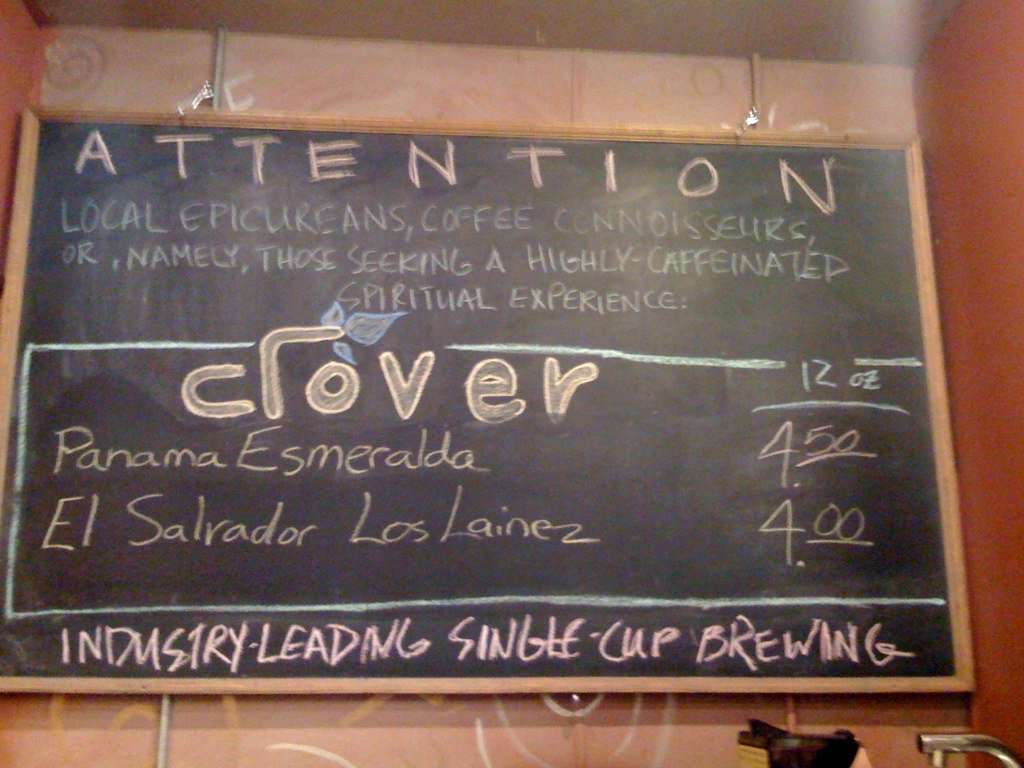 ATTENTION
LOCAL EPICUREANS, COFFEE CONNOISSEURS,
OR, NAMELY, THOSE SEEKING A HIGHLY-CAFFEINATED
SPIRITUAL EXPERIENCE:
clover 12 oz
Panama Esmeralda 4.50
El Salvador Los Lainez 4.00
INDUSTRY-LEADING SINGLE-CUP BREWING